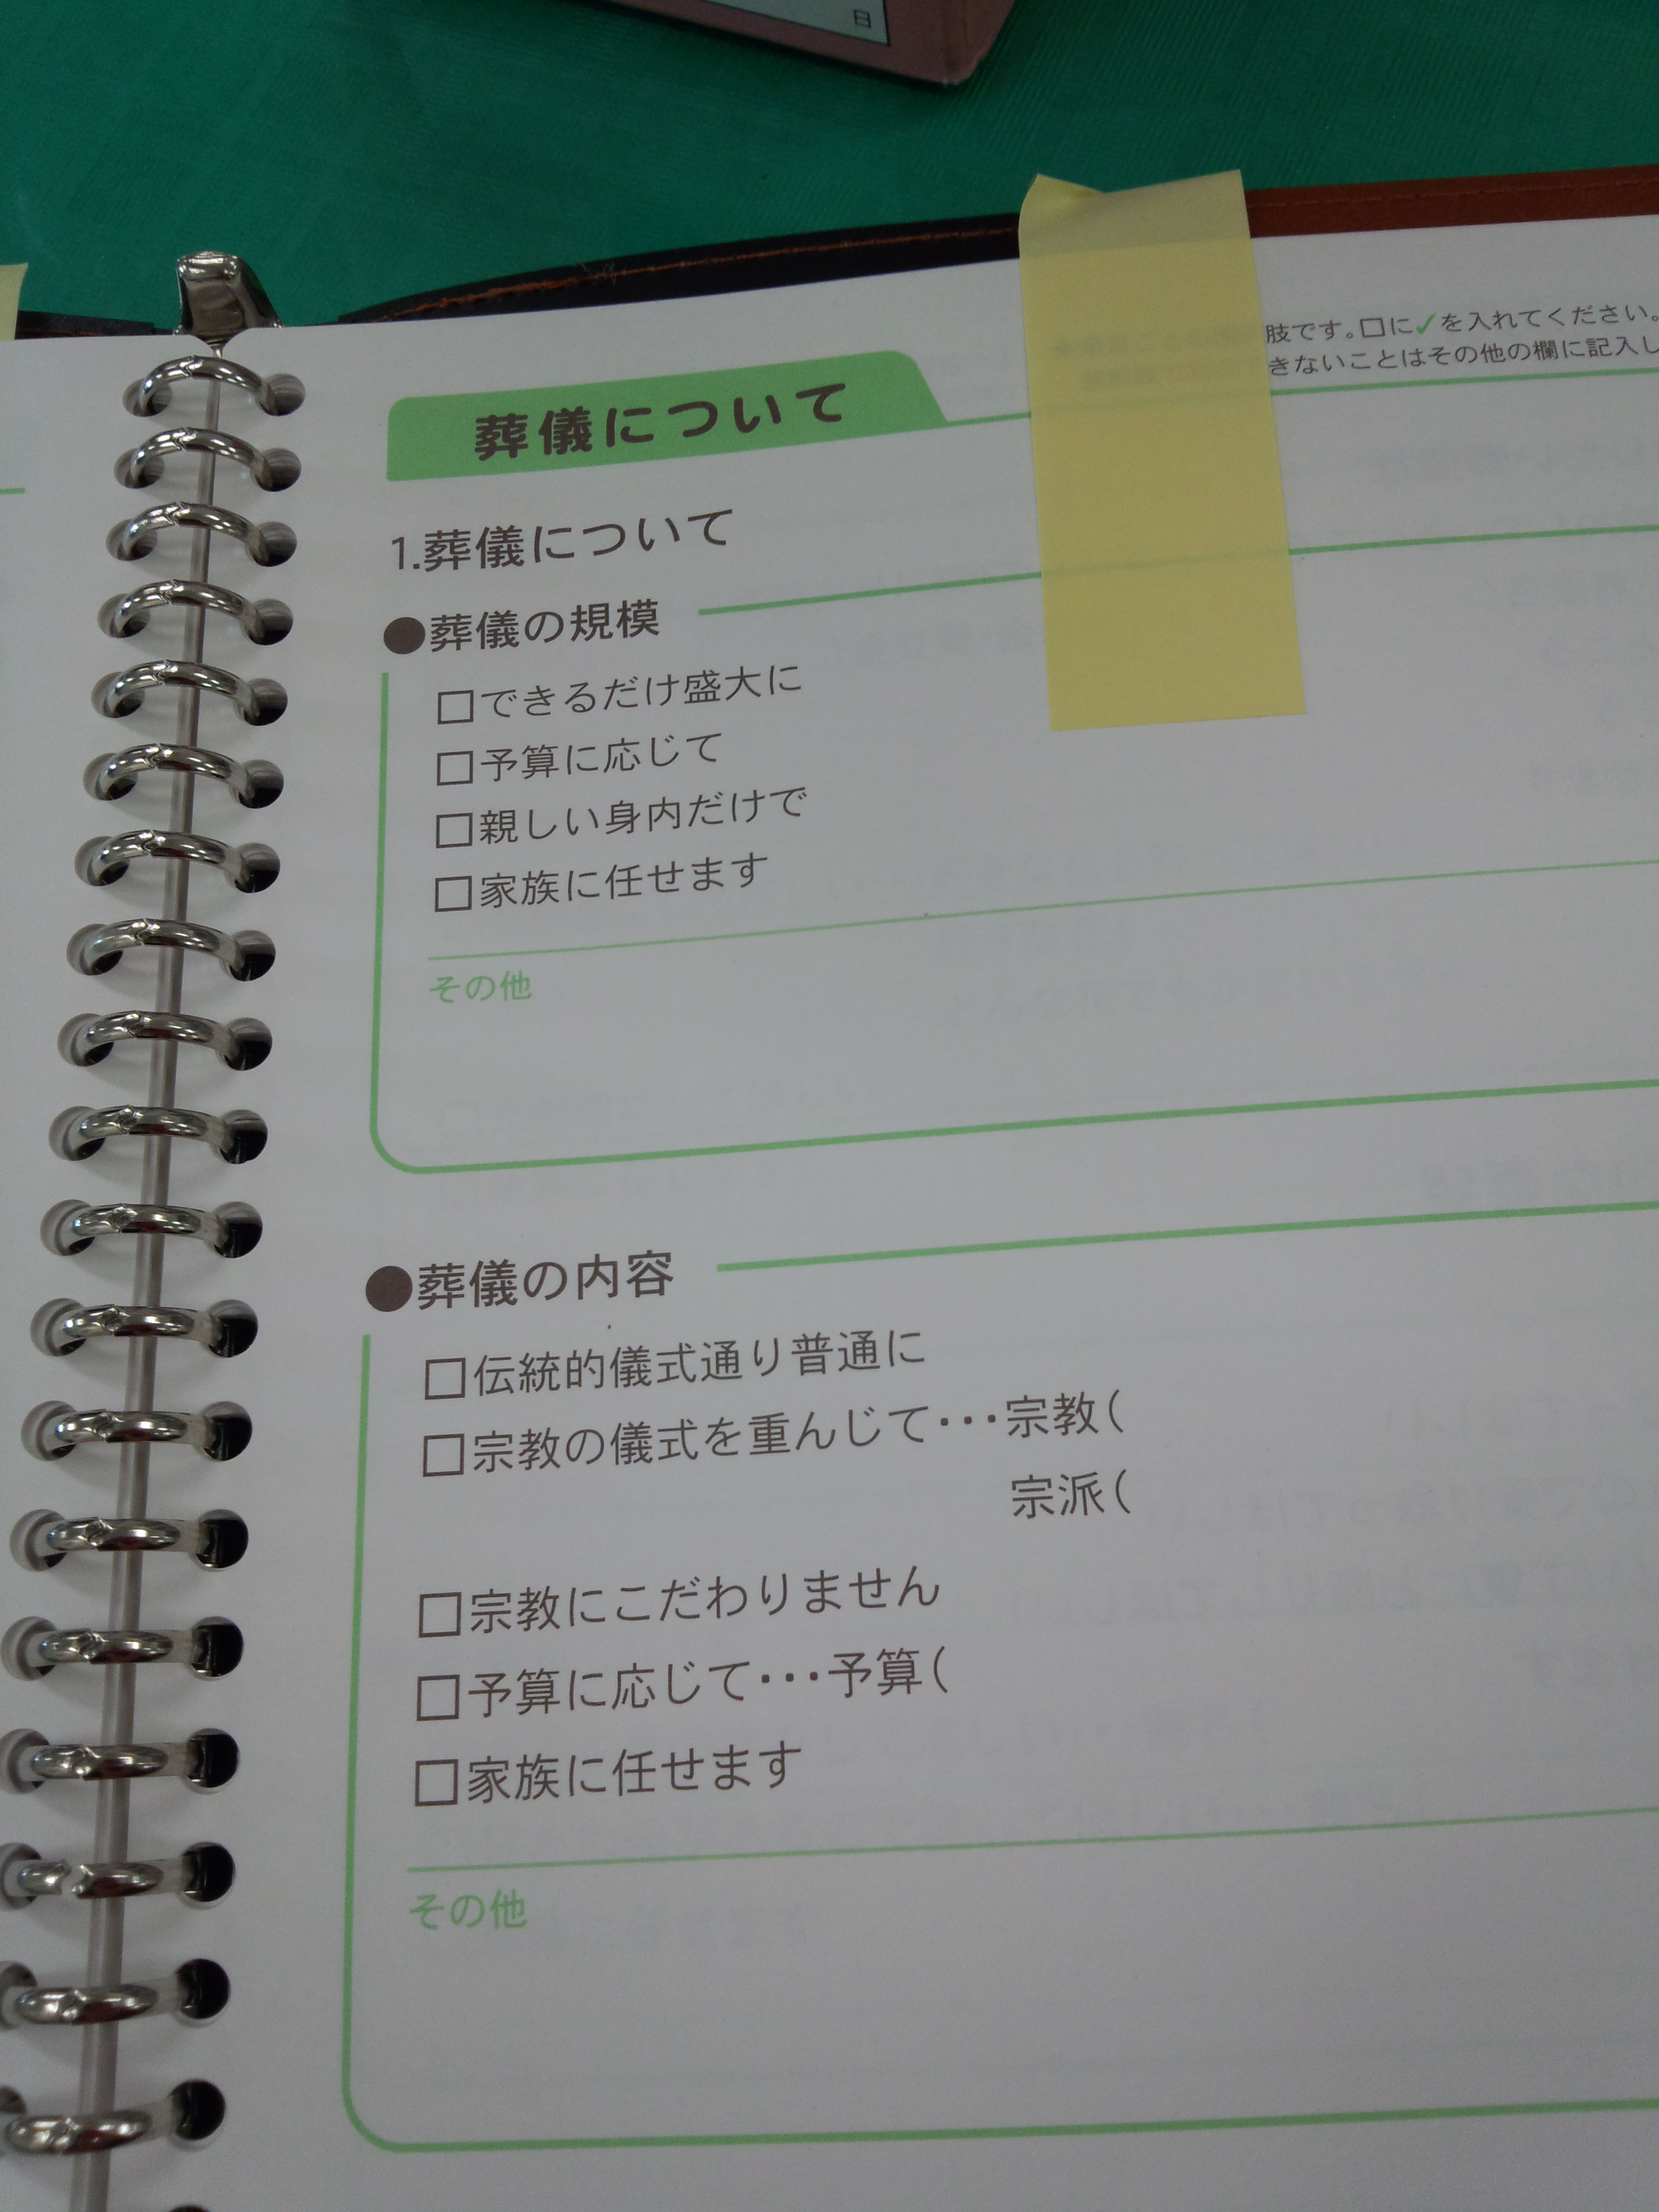 日
肢です。□に✓を入れてください。
きないことはその他の欄に記入し
葬儀について
1.葬儀について
●葬儀の規模
□できるだけ盛大に
□予算に応じて
□親しい身内だけで
□家族に任せます
その他
●葬儀の内容
□伝統的儀式通り普通に
□宗教の儀式を重んじて・・・宗教(
宗派(
□宗教にこだわりません
□予算に応じて・・・予算(
□家族に任せます
その他